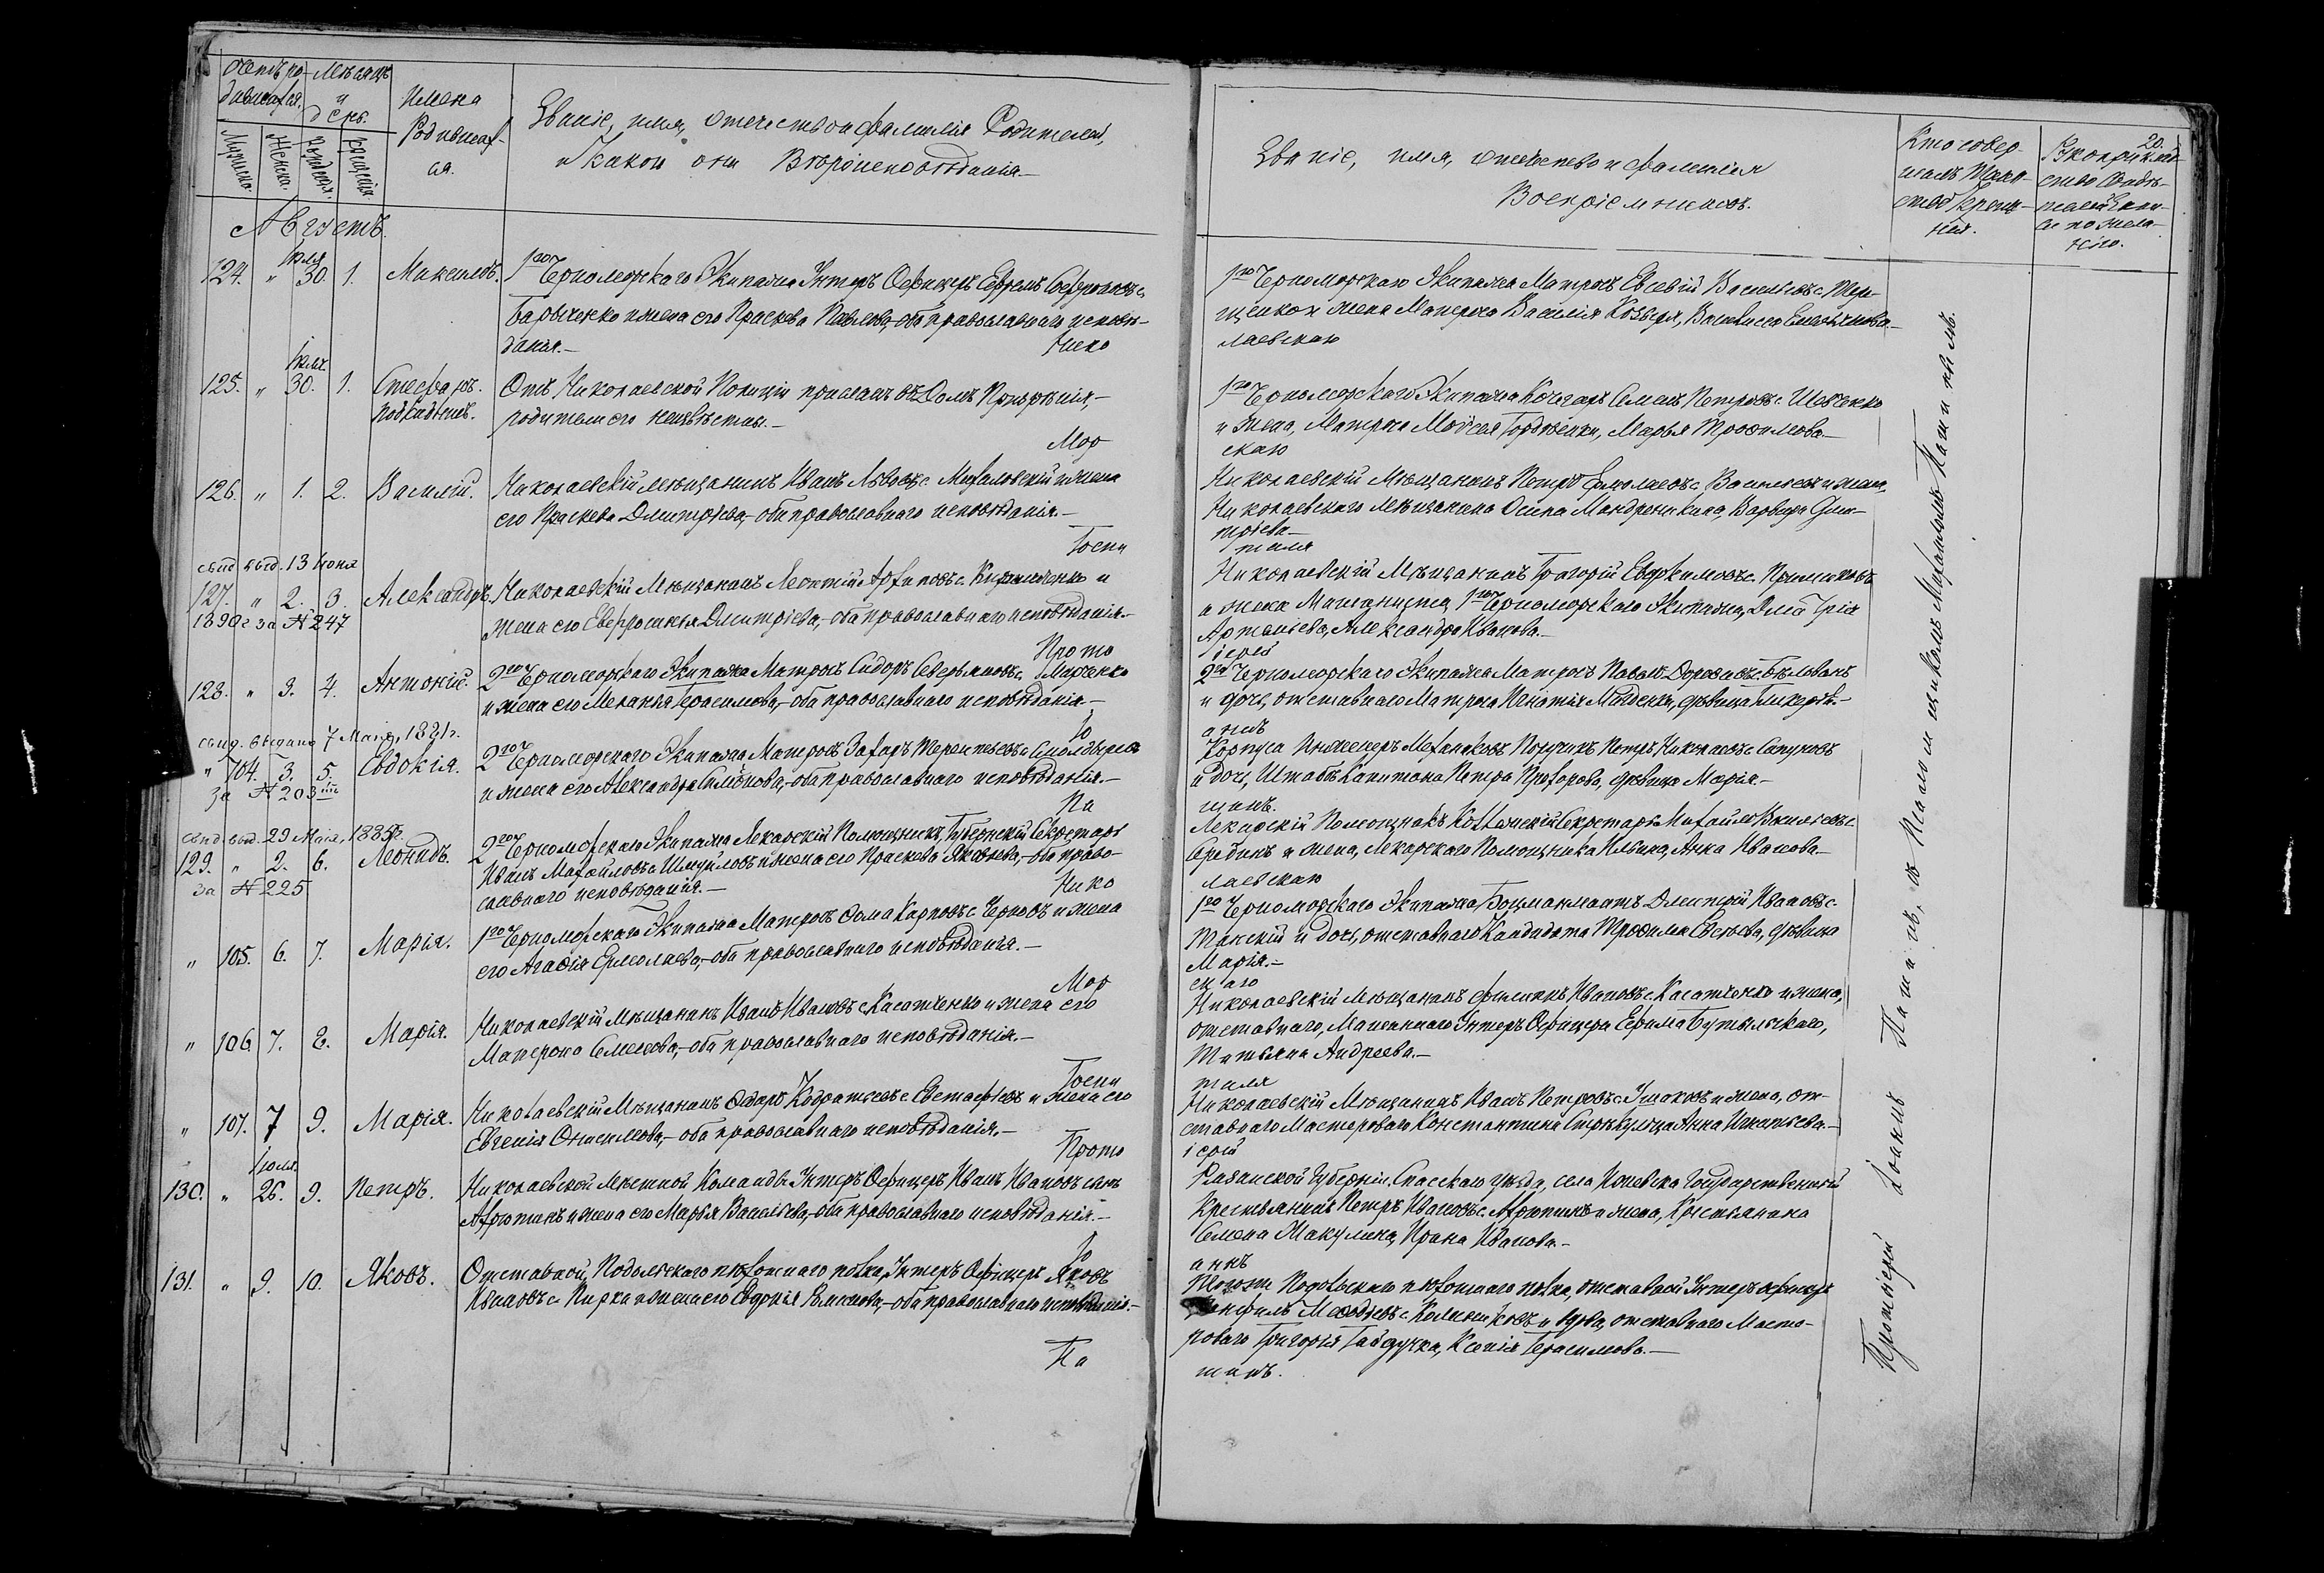 Счетъ ро-
дившихся.
Мѣсяцъ
и
день.
Мужеска.
Женска.
Рожденія.
Крещенія.
Имена
Родивших-
ся.
Званіе, имя, отчество и фамилія Родителей,
и какого они Вѣроисповѣданія.—
Августъ.
124. " Іюля 30. 1. Максимъ.
1го Черноморскаго Экипажа Унтеръ Офицеръ
и жена его Праскева Павлова,-оба православнаго исповѣ-
данія.—
Нико
125. " Іюля 30. 1. Стефанъ.
подкидышъ.
Отъ Николаевской Полиціи присланъ въ Домъ Призрѣнія,-
родители его неизвѣстны.—
Мор
126. " 1. 2. Василій.
Николаевскій мѣщанинъ Иванъ Львовъ с. и жена
его Праскева Дмитріева,-оба православнаго исповѣданія.—
Госпи
свид. выд. 13 Іюня
127. " 2. 3. Александръ.
1890 г за № 247
Николаевскій Мѣщанинъ Леонтій и
жена его Евфросинія Дмитріева,-оба православнаго исповѣданія.—
Прото
128. " 3. 4. Антоній.
2го Черноморскаго Экипажа Матросъ Сидоръ Марченко
и жена его Меланія Герасимова,-оба православнаго исповѣданія.—
Іо
свид. выдано 7 Маія, 1891 г.
" 104. 3. 5. Евдокія.
за № 203
2го Черноморскаго Экипажа Матросъ Захаръ Терентьевъ с.
и жена его Александра Симонова,-оба православнаго исповѣданія.—
Па
свид. выд. 29 Маія, 1885 г.
129. " 2. 6. Леонидъ.
за № 225
2го Черноморскаго Экипажа Лекарскій Помощникъ, Губернскій Секретарь
Иванъ Михайловъ с. и жена его Праскева Яковлева,-оба право-
славнаго исповѣданія.—
Нико
" 105. 6. 7. Марія.
1го Черноморскаго Экипажа Матросъ Ѳома Карповъ с. Черновъ и жена
его Агафія Ермолаева,-оба православнаго исповѣданія.—
Мор
" 106. 7. 8. Марія.
Николаевскій Мѣщанинъ Иванъ Ивановъ с. Касатченко и жена его
Матрона Семенова,-оба православнаго исповѣданія.—
Госпи
" 107. 7 9. Марія.
Николаевскій Мѣщанинъ Ѳедоръ Кодратьевъ с. Евстафіевъ и жена его
Евгенія Онисимова,-оба православнаго исповѣданія.—
Прото
130. " Іюля 26. 9. Петръ.
Николаевской Мѣстной Команды Унтеръ Офицеръ Иванъ Ивановъ сынъ
и жена его Марья Васильева,-оба православнаго исповѣданія.—
Іо
131. " 9. 10. Яковъ.
Отставной, Подольскаго пѣхотнаго полка, Унтеръ Офицеръ Яковъ
Ивановъ с. Кирка и жена его -оба православнаго исповѣданія.—
Па
20.
Званіе, имя, отчество и фамилія
Воспріемниковъ.
Кто совер-
шалъ Таин-
ство Креще-
нія.
Рукоприклад-
ство Свидѣ-
телей записи
по жела-
нію.
1го Черноморскаго Экипажа Матросъ Евсевій Васильевъ с. Тер-
щенко и жена Матроса Василія Козыря, Василиса
лаевскаго
1го Черноморскаго Экипажа Кочегаръ Семенъ Петровъ с. Шевченко
и жена, Матроса Моисея Гордѣенки, Марья Трофимова—
скаго
Николаевскій Мѣщанинъ Петръ Ермолаевъ с. Васильевъ и жена,
Николаевскаго мѣщанина Осипа Мандрыкина, Варвара Дми-
тріева—
таля
Николаевскій Мѣщанинъ Григорій Евфимовъ с.
и жена Машиниста 1го Черноморскаго Экипажа, Дмитрія
Артемьева, Александра Иванова.—
іерей
2го Черноморскаго Экипажа Матросъ Павелъ
и дочь, отставнаго Матроса Игнатія дѣвица Гликерія.—
аннъ
Корпуса Инженеръ Механиковъ Поручикъ Петръ Николаевъ с. Сапуновъ
и дочь, Штабсъ Капитана Петра Прохорова, дѣвица Марія.—
шинъ.
Лекарскій Помощникъ Коллежскій Секретарь Михаилъ Васильевъ с.
Срединъ и жена, Лекарскаго Помощника Ильина, Анна Иванова—
лаевскаго
1го Черноморскаго Экипажа Боцманматъ Дмитрій Ивановъ с.
и дочь, отставнаго Кандидата Трофима дѣвица
Марія.—
скаго
Николаевскій Мѣщанинъ Филиппъ Ивановъ с. Касатченко и жена,
отставнаго, Машиннаго Унтеръ Офицера Ефима Бутыльскаго,
Татьяна Андреева.—
таля
Николаевскій Мѣщанинъ Иванъ Петровъ с. Ушаковъ и жена, от-
ставнаго Мастероваго Константина Стрѣльца Анна Игнатьева.—
іерей
Рязанской Губерніи, Спасскаго уѣзда, села Государственный
Крестьянинъ Петръ Ивановъ с. и жена, Крестьянина
Семена Макулина, Ирина Иванова.—
аннъ
Подольскаго пѣхотнаго полка, отставной Унтеръ офицеръ
с. Колесниковъ и вдова, отставнаго Масте-
роваго Григорія Гайдучка, Ксенія Герасимова.—
шинъ.
Протоіерей Іоаннъ Пашинъ, съ Псаломщикомъ Михаиломъ